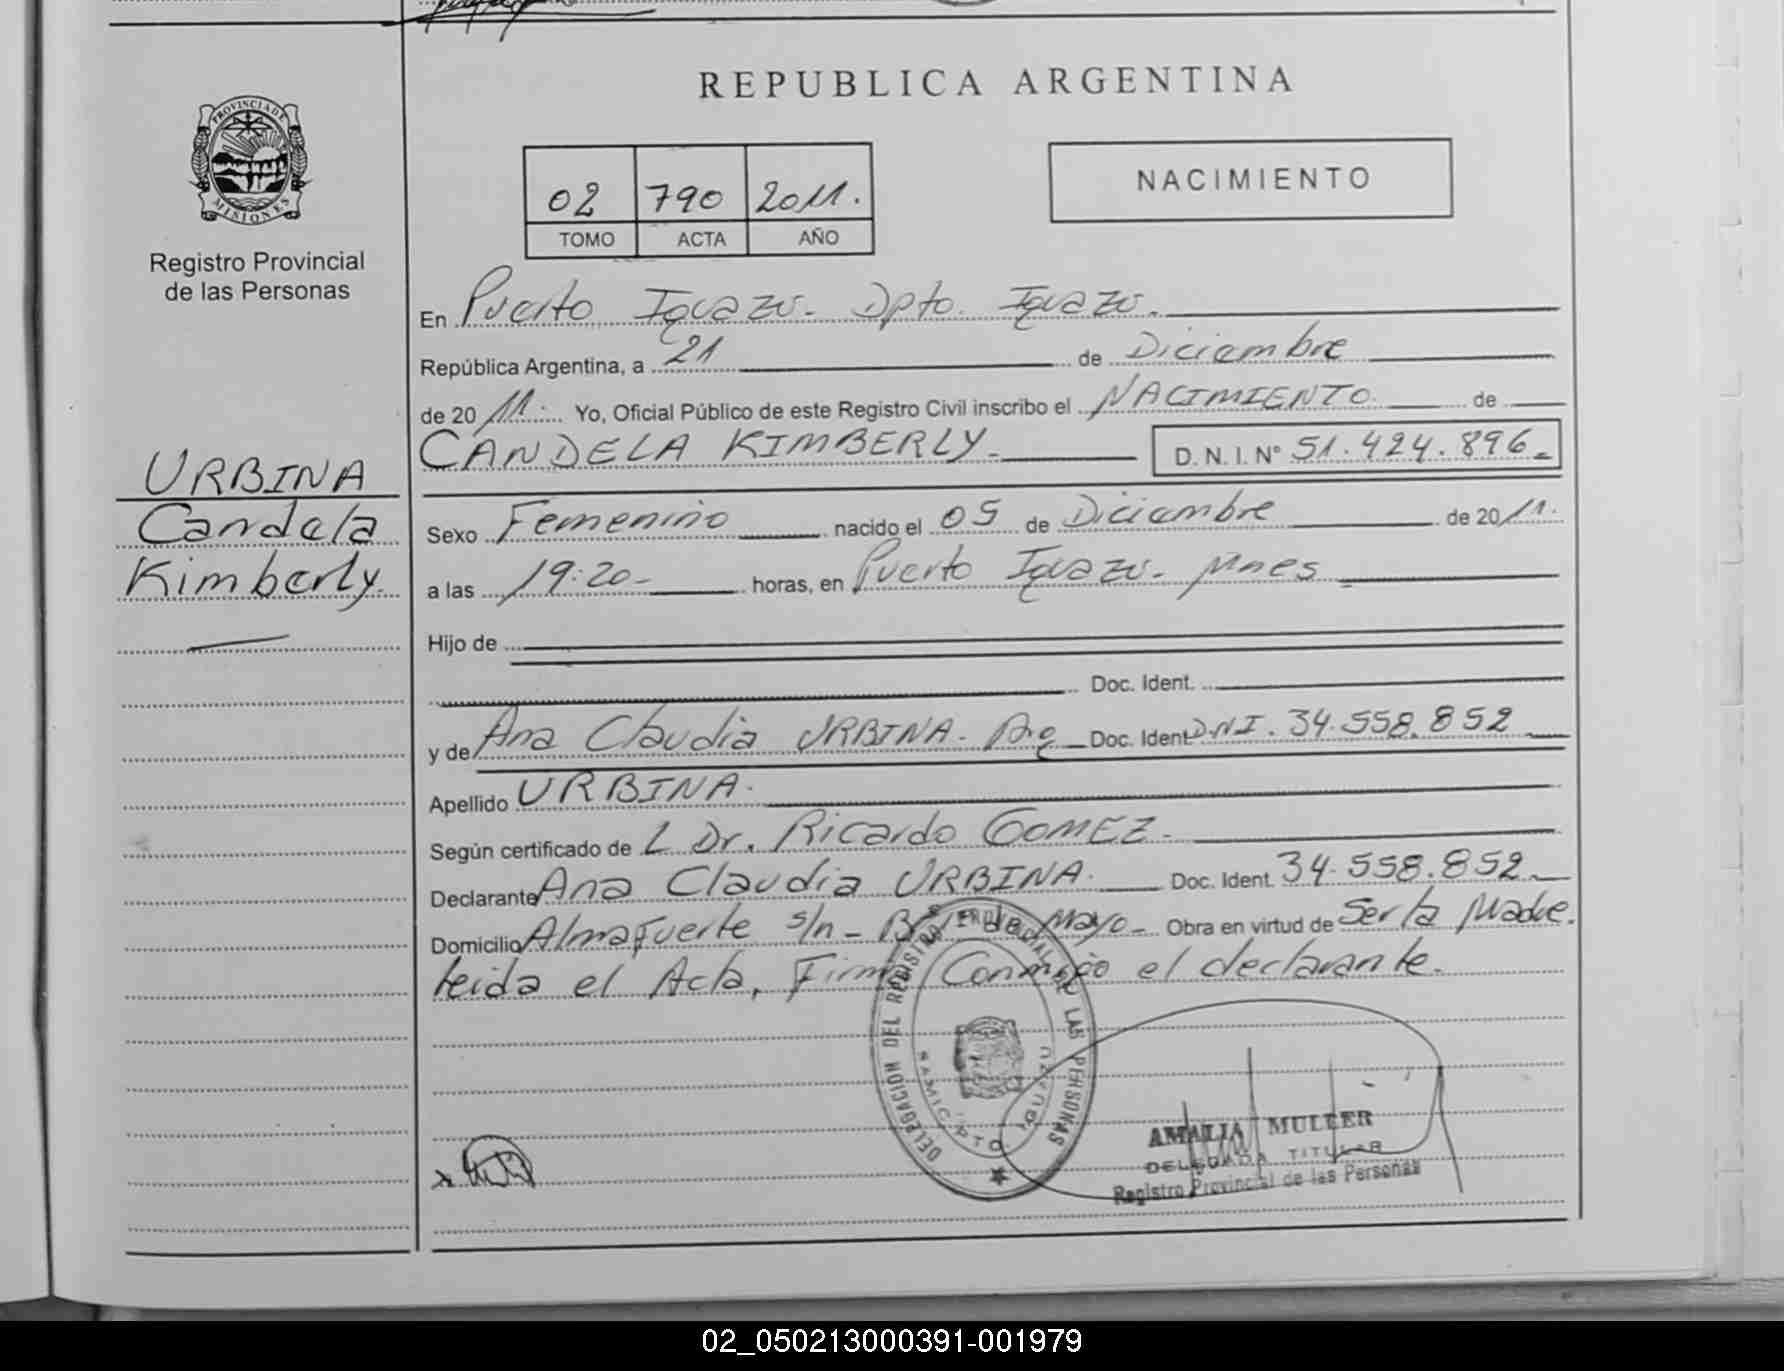 REPUBLICA ARGENTINA
PROVINCIA DE MISIONES
Registro Provincial
de las Personas
02 790 2011.
TOMO ACTA AÑO
NACIMIENTO
En Puerto Iguazu. Dpto. Iguazu.
República Argentina, a 21 de Diciembre
de 20 11. Yo, Oficial Público de este Registro Civil inscribo el NACIMIENTO de
CANDELA KIMBERLY. D.N.I. Nº 51.424.896
URBINA
Candela
Kimberly.
Sexo Femenino nacido el 05 de Diciembre de 20 11.
a las 19:20 horas, en Puerto Iguazu. Mnes
Hijo de
Doc. Ident.
y de Ana Claudia URBINA. Arg Doc. Ident. DNI. 34.558.852
Apellido URBINA.
Según certificado de L Dr. Ricardo GOMEZ.
Declarante Ana Claudia URBINA. Doc. Ident. 34.558.852
Domicilio Almafuerte s/n - Mayo Obra en virtud de Ser la Madre.
Leida el Acta, Firma Conmigo el declarante.
DELEGACION DEL REGISTRO PROVINCIAL DE LAS PERSONAS
DPTO. IGUAZU
AMALIA MULLER
DELEGADA TITULAR
Registro Provincial de las Personas
02_050213000391-001979